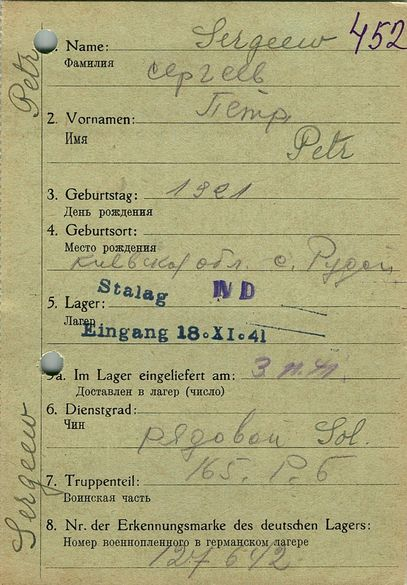 452
1. Name: Sergeew
Фамилия
сергеев
Petr
2. Vornamen: Пётр
Имя
Petr
3. Geburtstag: 1921
День рождения
4. Geburtsort:
Место рождения
Киевская обл. с. Рудой
5. Lager: Stalag IV D
Лагер
Eingang 18.XI.41
5a. Im Lager eingeliefert am: 3.11.41.
Доставлен в лагер (число)
6. Dienstgrad:
Чин
рядовой Sol.
7. Truppenteil: 165. Р. б
Воинская часть
8. Nr. der Erkennungsmarke des deutschen Lagers:
Номер военнопленного в германском лагере
127642
Sergeew